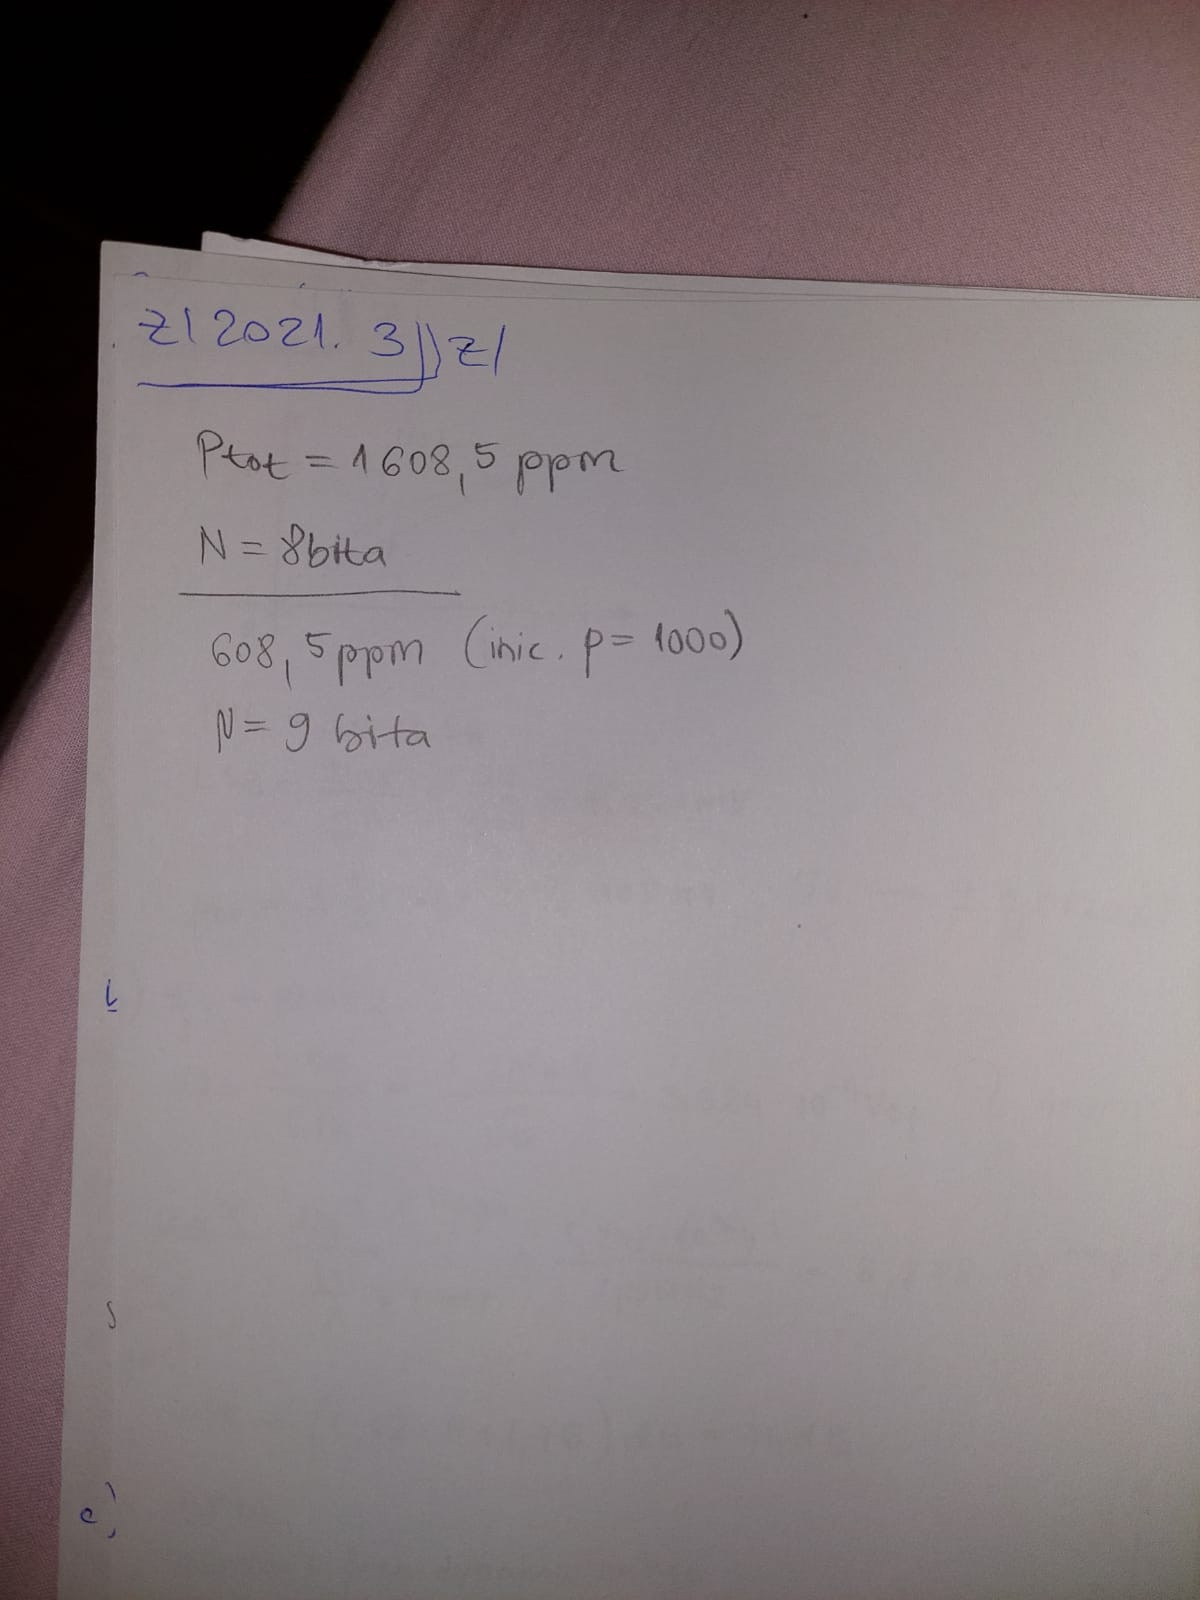 ZI 2021. 3) ZI
Ptot = 1608,5 ppm
N = 8bita
608,5 ppm (inic. p = 1000)
N = 9 bita
e)